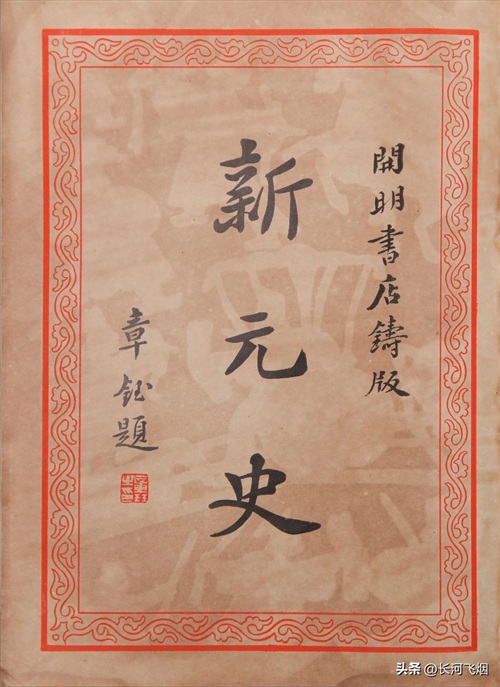 開明書店鑄版
新元史
章鈺題
头条 @长河飞烟